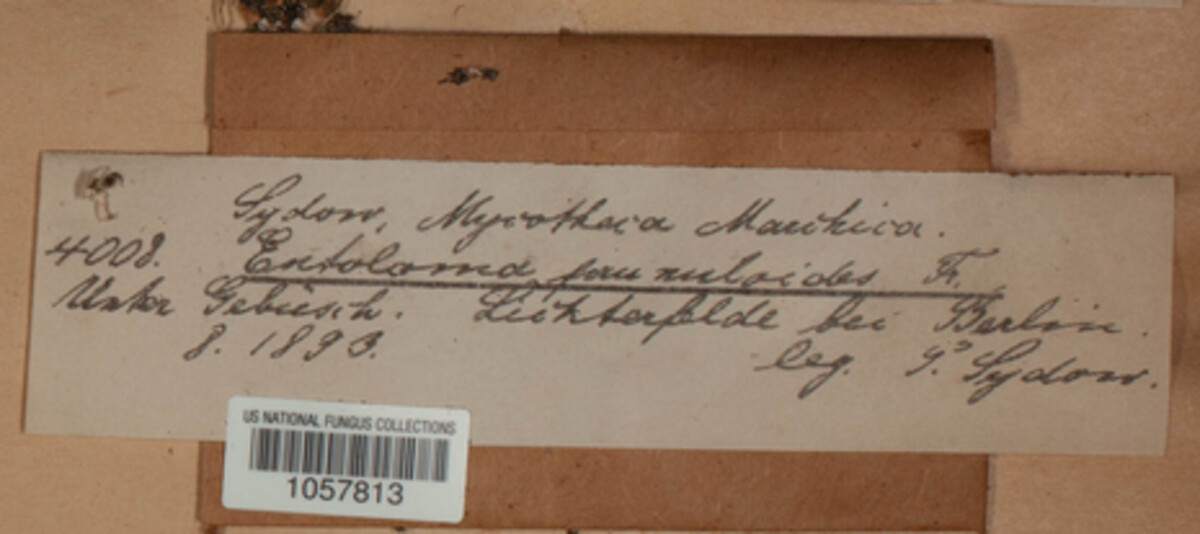 Sydow, Mycotheca Marchica.
4008. Entoloma prunuloides Fr.
Unter Gebüsch. Lichterfelde bei Berlin.
8. 1893. leg. P. Sydow.
US NATIONAL FUNGUS COLLECTIONS
1057813